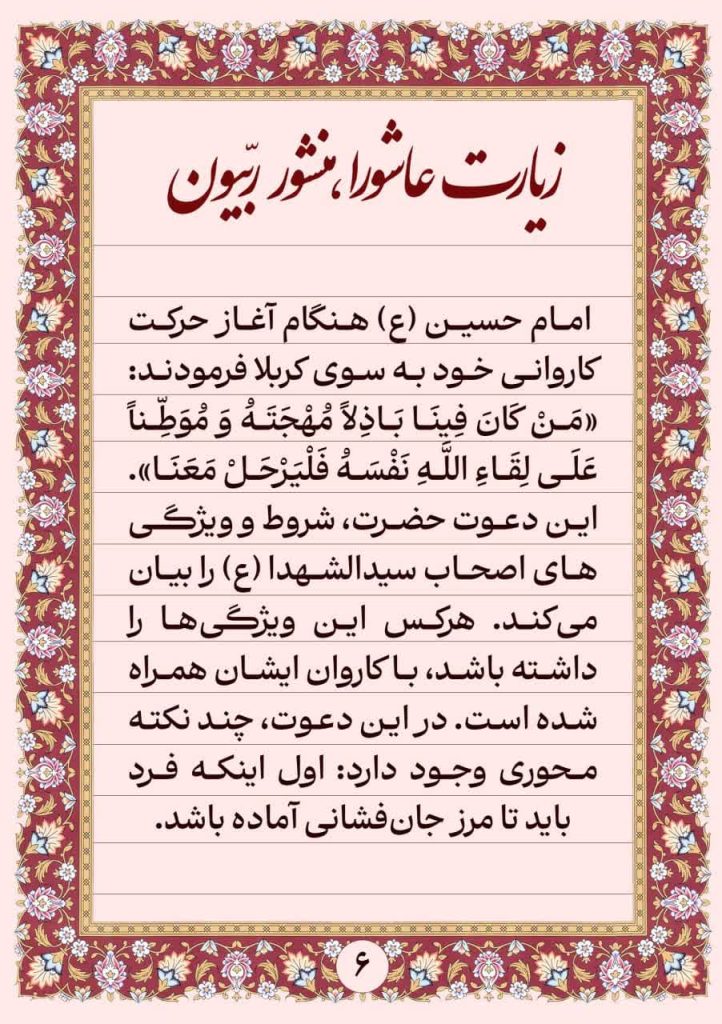 زیارت عاشورا، منشور ربّیون
امام حسین (ع) هنگام آغاز حرکت
کاروانی خود به سوی کربلا فرمودند:
«مَنْ کَانَ فِینَا بَاذِلاً مُهْجَتَهُ وَ مُوَطِّناً
عَلَی لِقَاءِ اللَّهِ نَفْسَهُ فَلْیَرْحَلْ مَعَنَا».
این دعوت حضرت، شروط و ویژگی
های اصحاب سیدالشهدا (ع) را بیان
می‌کند. هرکس این ویژگی‌ها را
داشته باشد، با کاروان ایشان همراه
شده است. در این دعوت، چند نکته
محوری وجود دارد: اول اینکه فرد
باید تا مرز جان‌فشانی آماده باشد.
۶